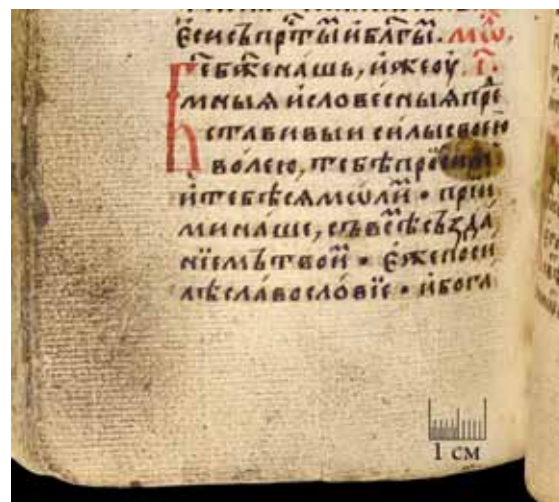 є҆сисъпрⷭ҇тыⷨ и҆блⷢ҇гыⷨ. мѡⷧ҇.
бж҃енашь, и҆жеоу҆ г҃.
мныѧ и҆словесныѧпреⷣ
ставивыи силысвоею
волею, тебѣпро́симⸯ
и҆тебѣсѧмѡ́лиⷨ • прїи
минаше, съвсⷨ҇ѣсъзда́
нїемътвоиⷨ • є҆жепоси
лѣсла́восло́вїе • и҆бога́
1 см